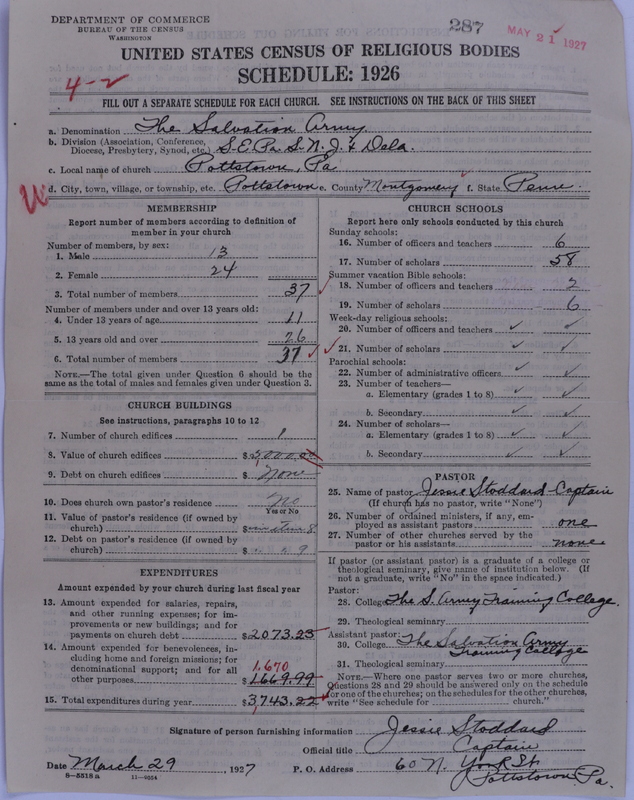 DEPARTMENT OF COMMERCE
BUREAU OF THE CENSUS
WASHINGTON
287
MAY 21 1927
UNITED STATES CENSUS OF RELIGIOUS BODIES
SCHEDULE: 1926
4-2
FILL OUT A SEPARATE SCHEDULE FOR EACH CHURCH. SEE INSTRUCTIONS ON THE BACK OF THIS SHEET
a. Denomination The Salvation Army
b. Division (Association, Conference, Diocese, Presbytery, Synod, etc.) S.E. Pa. S. N. J. & Dela.
c. Local name of church Pottstown, Pa
d. City, town, village, or township, etc. Pottstown e. County Montgomery f. State Penn.
MEMBERSHIP
Report number of members according to definition of
member in your church
Number of members, by sex:
1. Male 13
2. Female 24
3. Total number of members 37
Number of members under and over 13 years old:
4. Under 13 years of age 11
5. 13 years old and over 26
6. Total number of members 37
NOTE.—The total given under Question 6 should be
same as the total of males and females given under Question 3.
CHURCH BUILDINGS
See instructions, paragraphs 10 to 12
7. Number of church edifices 1
8. Value of church edifices $5,000.00
9. Debt on church edifices $ None
10. Does church own pastor's residence No
Yes or No
11. Value of pastor's residence (if owned by
church) $
12. Debt on pastor's residence (if owned by
church) $
EXPENDITURES
Amount expended by your church during last fiscal year
13. Amount expended for salaries, repairs,
and other running expenses; for im-
provements or new buildings; and for
payments on church debt $2073.23
14. Amount expended for benevolences, in-
cluding home and foreign missions; for
denominational support; and for all
1,670
other purposes $1669.99
15. Total expenditures during year $3743.22
CHURCH SCHOOLS
Report here only schools conducted by this church
Sunday schools:
16. Number of officers and teachers 6
17. Number of scholars 58
Summer vacation Bible schools:
18. Number of officers and teachers 2
19. Number of scholars 6
Week-day religious schools:
20. Number of officers and teachers
21. Number of scholars
Parochial schools:
22. Number of administrative officers
23. Number of teachers—
a. Elementary (grades 1 to 8)
b. Secondary
24. Number of scholars—
a. Elementary (grades 1 to 8)
b. Secondary
PASTOR
25. Name of pastor Jessie Stoddard Captain
(If church has no pastor, write "None")
26. Number of ordained ministers, if any, em-
ployed as assistant pastors one
27. Number of other churches served by the
pastor or his assistants none
If pastor (or assistant pastor) is a graduate of a college or
theological seminary, give name of institution below. (If
not a graduate, write "No" in the space indicated.)
Pastor:
28. College The S. Army Training College.
29. Theological seminary
Assistant pastor:
30. College The Salvation Army
Training College
31. Theological seminary
NOTE.—Where one pastor serves two or more churches,
Questions 28 and 29 should be answered only on the schedule
for one of the churches; on the schedules for the other churches,
write "See schedule for church."
Signature of person furnishing information Jessie Stoddard
Official title Captain
Date March 29, 1927 P. O. Address 60 N. York St
8-5518 a 11-9054 Pottstown Pa.